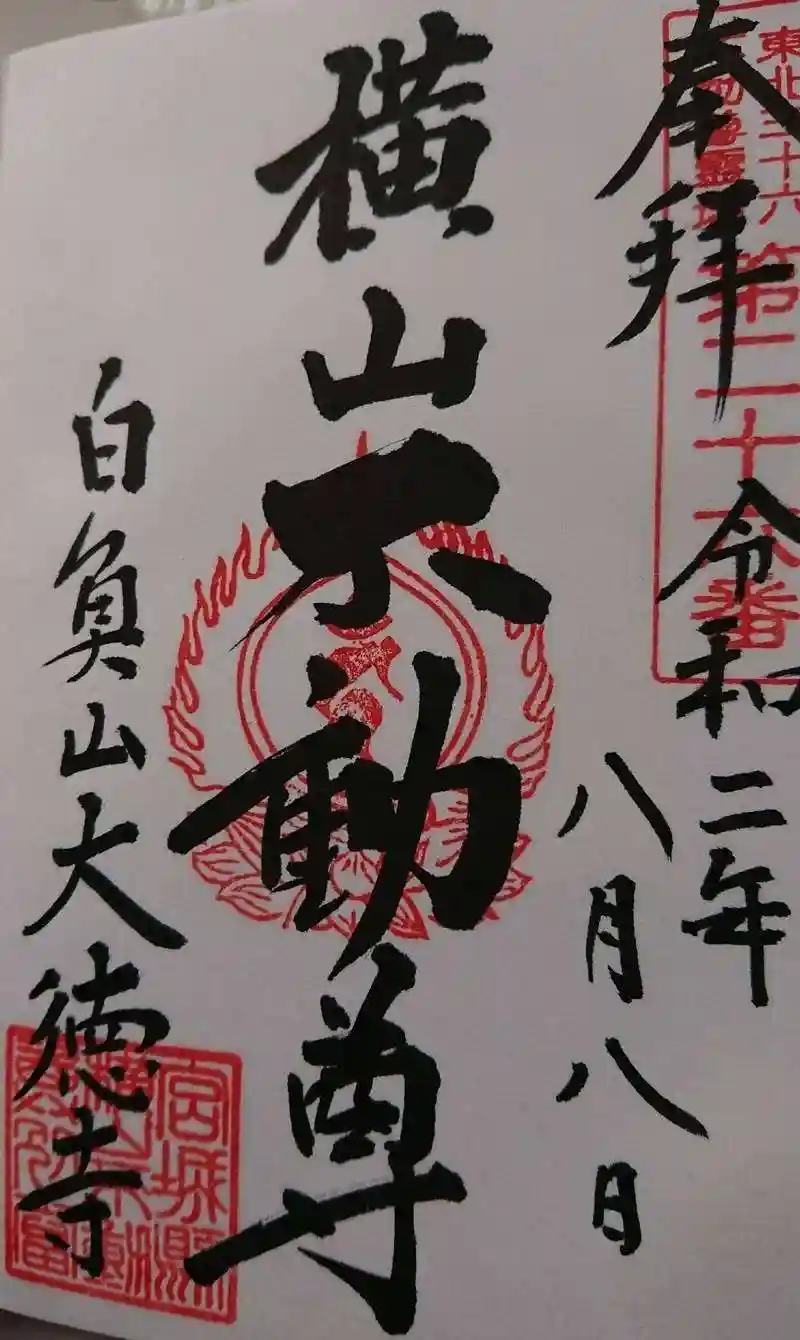 東北三十六
第二十六番
奉拝
令和二年
八月八日
横山不動尊
白魚山大徳寺
宮城県